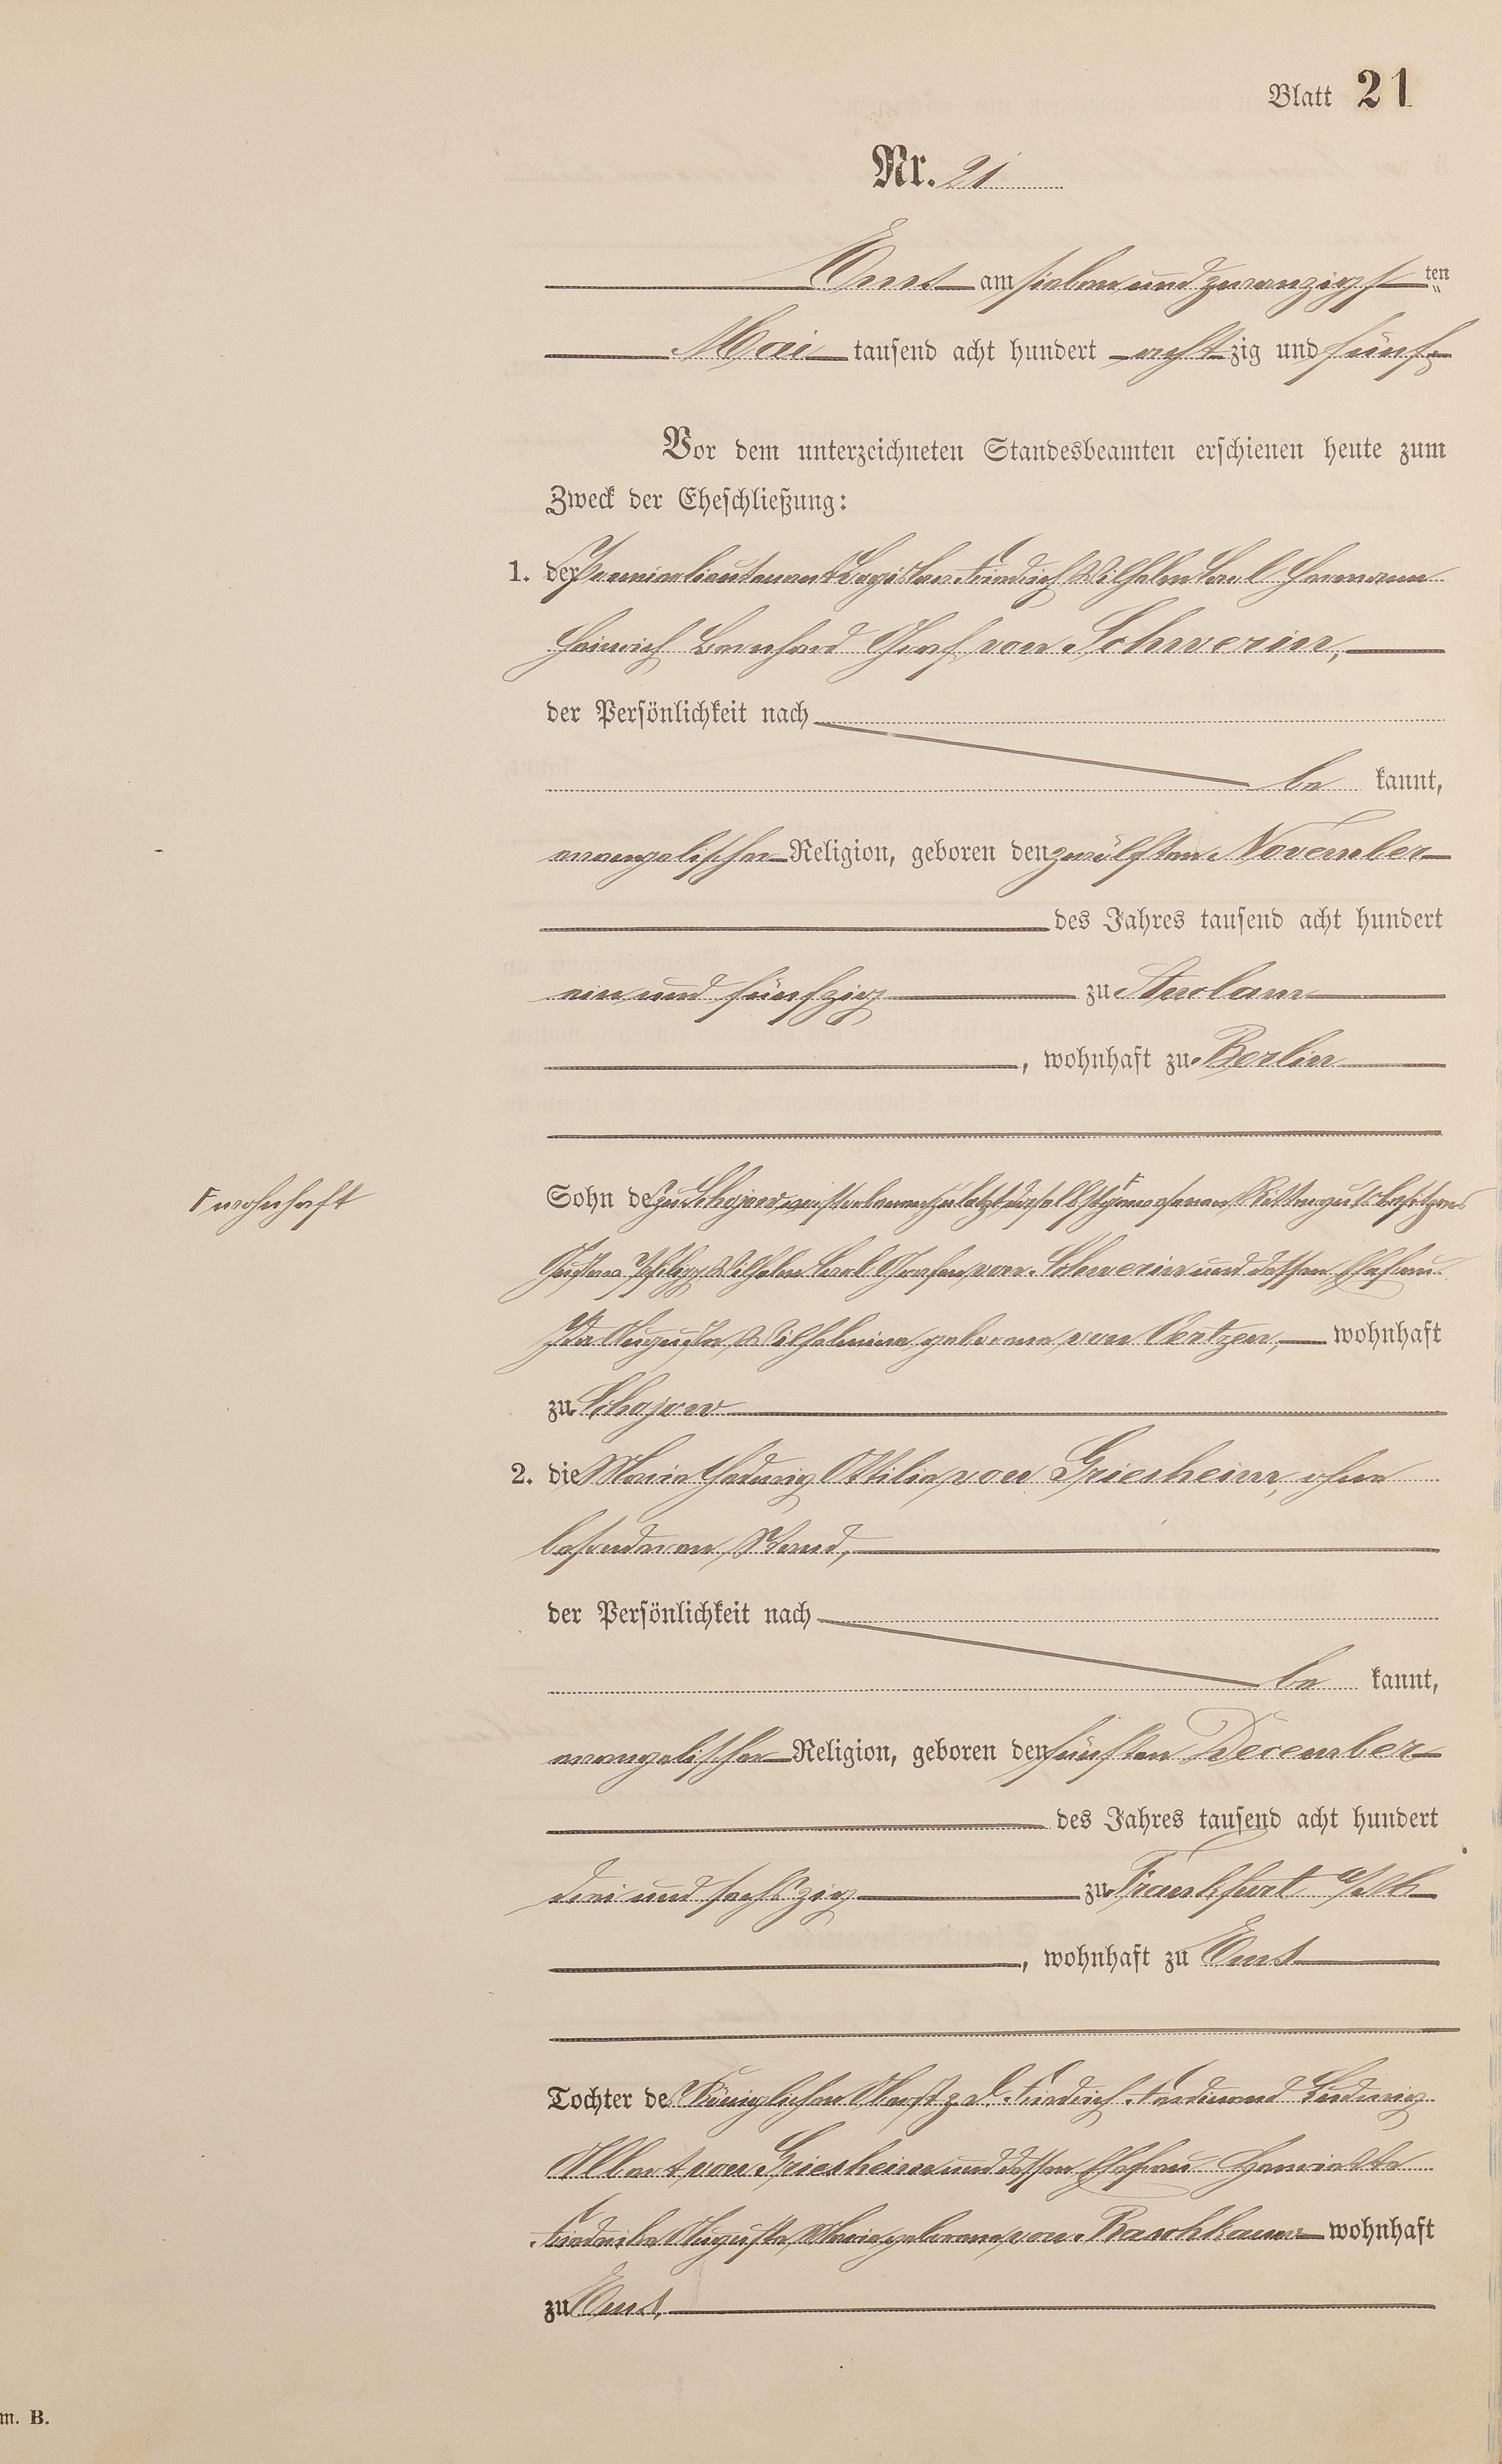 Blatt 21
Nr. 21
Ems am sieben und zwanzigsten
Mai tausend acht hundert achtzig und fünf
Vor dem unterzeichneten Standesbeamten erschienen heute zum
Zweck der Eheschließung:
1. der Premierlieutenant Friedrich Wilhelm Carl Hermann
Heinrich Bernhard Graf von Schwerin,
der Persönlichkeit nach
be kannt,
evangelischer Religion, geboren den zwölften November
des Jahres tausend acht hundert
ein und fünfzig zu Anclam
, wohnhaft zu Berlin
Sohn des zu Schojow verstorbenen zuletzt daselbst ⌜ gewesenen Rittergutsbesitzers
⌜ wohnhaft
Gustav Philipp Wilhelm Carl Grafen von Schwerin und dessen Ehefrau
Ida Auguste Wilhelmine geborene von Oertzen, wohnhaft
zu Schojow
2. die Marie Hedwig Ottilie von Griesheim, ohne
besonderen Stand,
der Persönlichkeit nach
be kannt,
evangelischer Religion, geboren den fünften December
des Jahres tausend acht hundert
drei und sechszig zu Frankfurt a/M
, wohnhaft zu Ems
Tochter des Königlichen Oberst z. D. Friedrich Ferdinand Ludwig
Albert von Griesheim und dessen Ehefrau Henriette
Friederike Auguste Marie geborene von wohnhaft
zu Ems,
m. B.